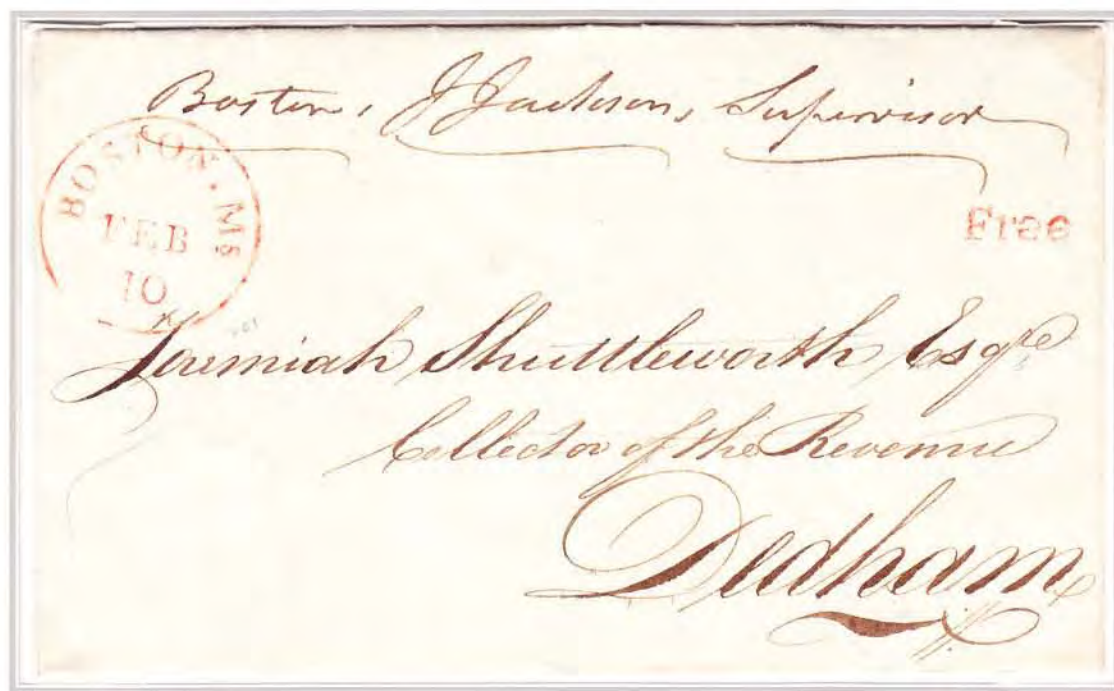 Boston, J Jackson, Supervisor
BOSTON • Ms
FEB
10
Free
Jeremiah Shuttleworth Esqre
Collector of the Revenue
Dedham